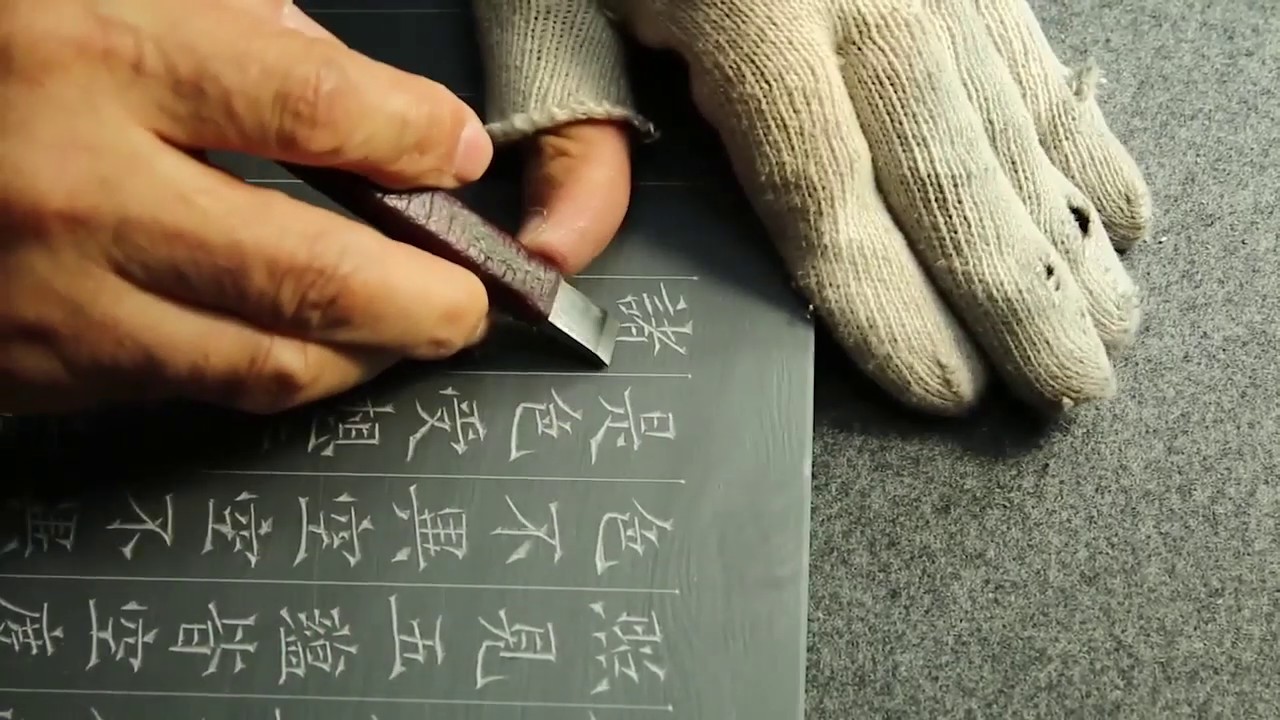 照見五蘊皆空度
色不異空空不異
是色受想
諸